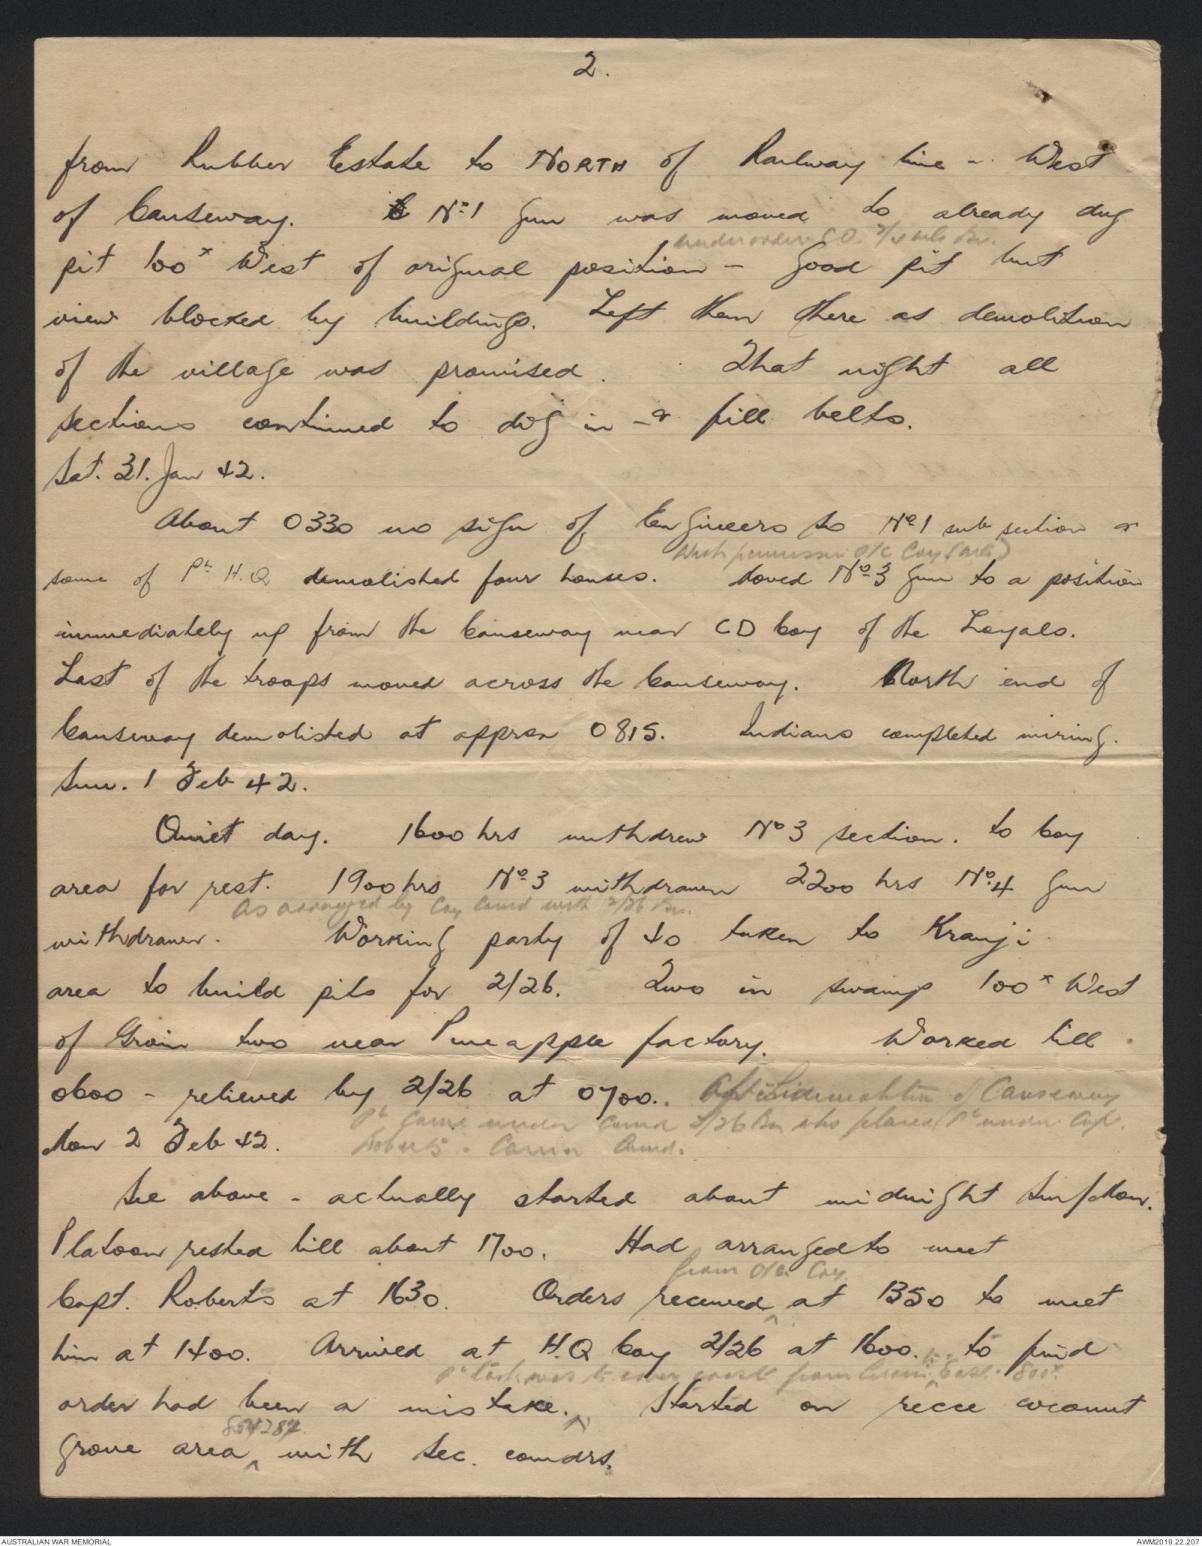 2.
from Rubber Estate to NORTH of Railway line - West
of Causeway. No 1 Gun was moved to already dug
under orders C.O. Bn.
pit 100x West of original position - Good pit but
view blocked by buildings. Left them there as demolition
of the village was promised. That night all
sections continued to dig in - & fill belts.
Sat. 31. Jan 42.
About 0330 no sign of Engineers so No 1 sub section &
with permission O/C Coy
some of Pl H.Q demolished four houses. Moved No 3 Gun to a position
immediately up from the Causeway near CD Coy of the Loyals.
Last of the troops moved across the Causeway. North end of
Causeway demolished at approx 0815. Indians completed wiring.
Sun. 1 Feb 42.
Quiet day. 1600 hrs withdrew No 3 section. to Coy
area for rest. 1900 hrs No 3 withdrawn 2200 hrs No 4 Gun
As arranged by Coy Comd with 2/26 Bn.
withdrawn. Working party of 40 taken to Kranji
area to build pits for 2/26. Two in swamp 100x West
of Groin two near Pineapple factory. Worked till
0600 - relieved by 2/26 at 0700.. After demolition of Causeway
Pl came under Comd 2/26 Bn who placed Pl under Capt.
Mon 2 Feb 42. Roberts - Carrier Comd.
See above - actually started about midnight Sun/Mon.
Platoon rested till about 1700. Had arranged to meet
from O/C Coy
Capt. Roberts at 1630. Orders received at 1350 to meet
him at 1400. Arrived at H.Q Coy 2/26 at 1600. to find
Pl task was to cover coast from Groin to East - 800x
order had been a mistake. Started on recce coconut
854284
grove area with Sec. comdrs.
AUSTRALIAN WAR MEMORIAL
AWM2019.22.207